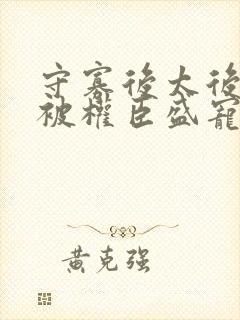 守寡後太後
被權臣盛寵
黄克强